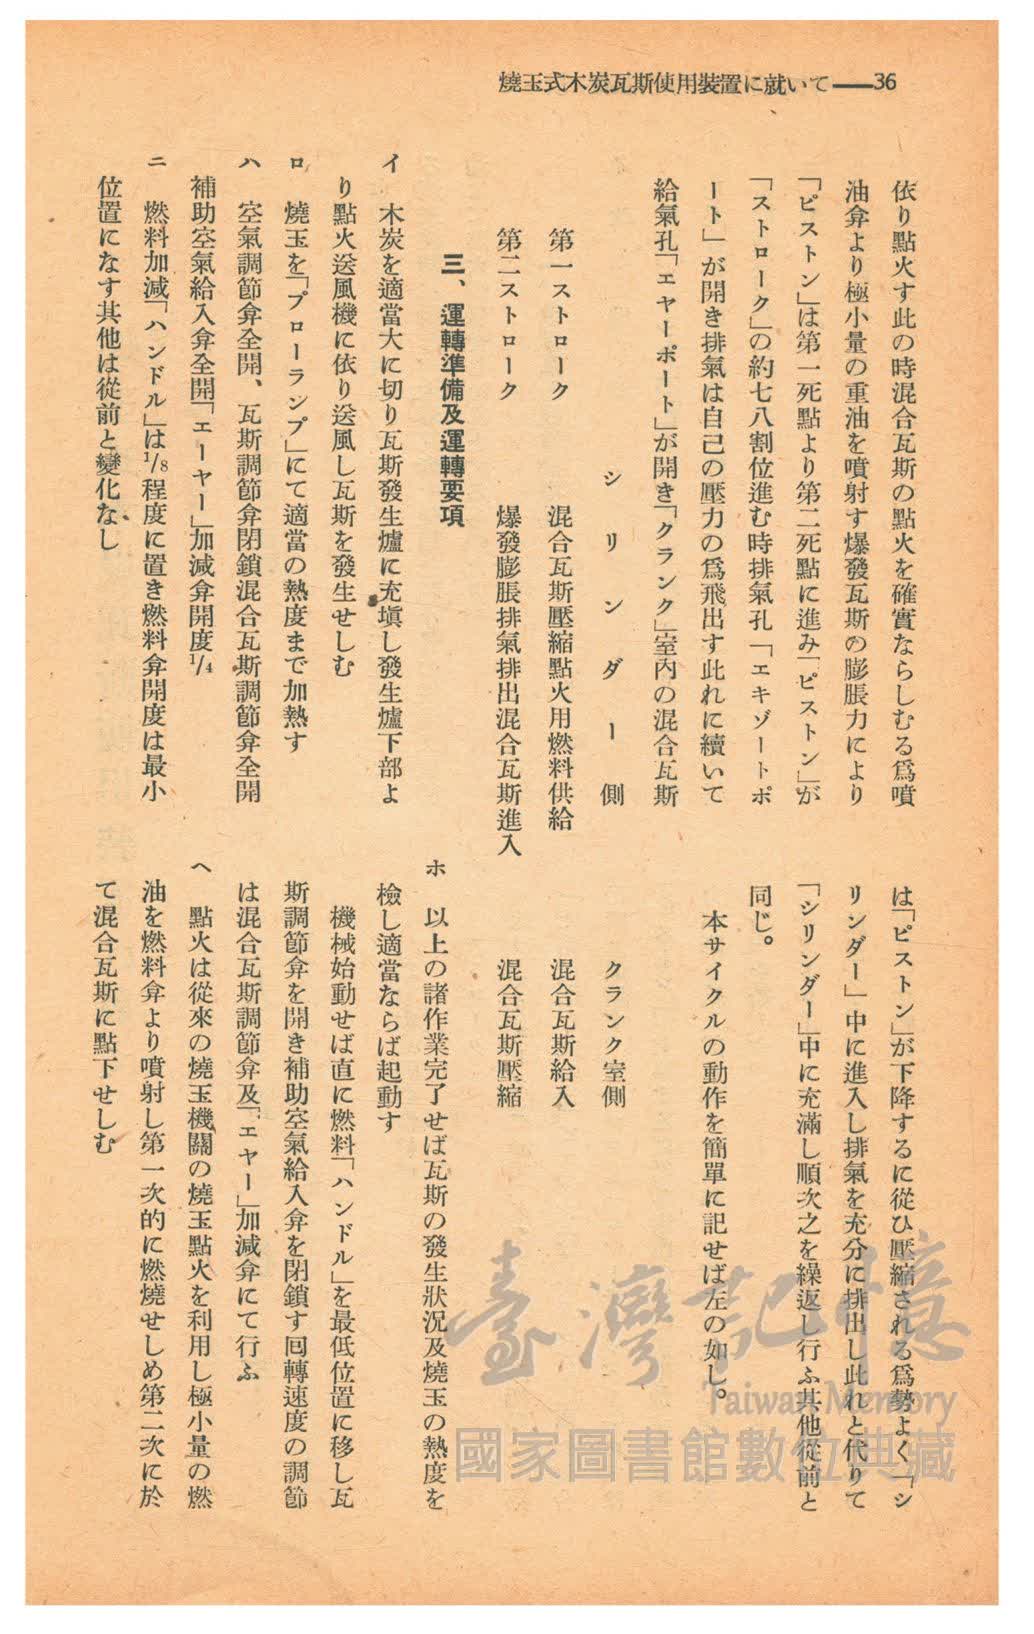 燒玉式木炭瓦斯使用裝置に就いて――36
依り點火す此の時混合瓦斯の點火を確實ならしむる爲噴
油弇より極小量の重油を噴射す爆發瓦斯の膨脹力により
「ピストン」は第一死點より第二死點に進み「ピストン」が
「ストローク」の約七八割位進む時排氣孔「エキゾートポ
ート」が開き排氣は自己の壓力の爲飛出す此れに續いて
給氣孔「エヤーポート」が開き「クランク」室內の混合瓦斯
は「ピストン」が下降するに從ひ壓縮される爲勢よく「シ
リンダー」中に進入し排氣を充分に排出し此れと代りて
「シリンダー」中に充滿し順次之を繰返し行ふ其他從前と
同じ。
本サイクルの動作を簡單に記せば左の如し。
シリンダー側　クランク室側
第一ストローク　混合瓦斯壓縮點火用燃料供給　混合瓦斯給入
第二ストローク　爆發膨脹排氣排出混合瓦斯進入　混合瓦斯壓縮
三、運轉準備及運轉要項
イ　木炭を適當大に切り瓦斯發生爐に充塡し發生爐下部よ
り點火送風機に依り送風し瓦斯を發生せしむ
ロ　燒玉を「ブローランプ」にて適當の熱度まで加熱す
ハ　空氣調節弇全開、瓦斯調節弇閉鎖混合瓦斯調節弇全開
補助空氣給入弇全開「エーヤー」加減弇開度1/4
ニ　燃料加減「ハンドル」は1/8程度に置き燃料弇開度は最小
位置になす其他は從前と變化なし
ホ　以上の諸作業完了せば瓦斯の發生狀況及燒玉の熱度を
檢し適當ならば起動す
機械始動せば直に燃料「ハンドル」を最低位置に移し瓦
斯調節弇を開き補助空氣給入弇を閉鎖す囘轉速度の調節
は混合瓦斯調節弇及「エヤー」加減弇にて行ふ
ヘ　點火は從來の燒玉機關の燒玉點火を利用し極小量の燃
油を燃料弇より噴射し第一次的に燃燒せしめ第二次に於
て混合瓦斯に點下せしむ
臺灣記憶
Taiwan Memory
國家圖書館數位典藏